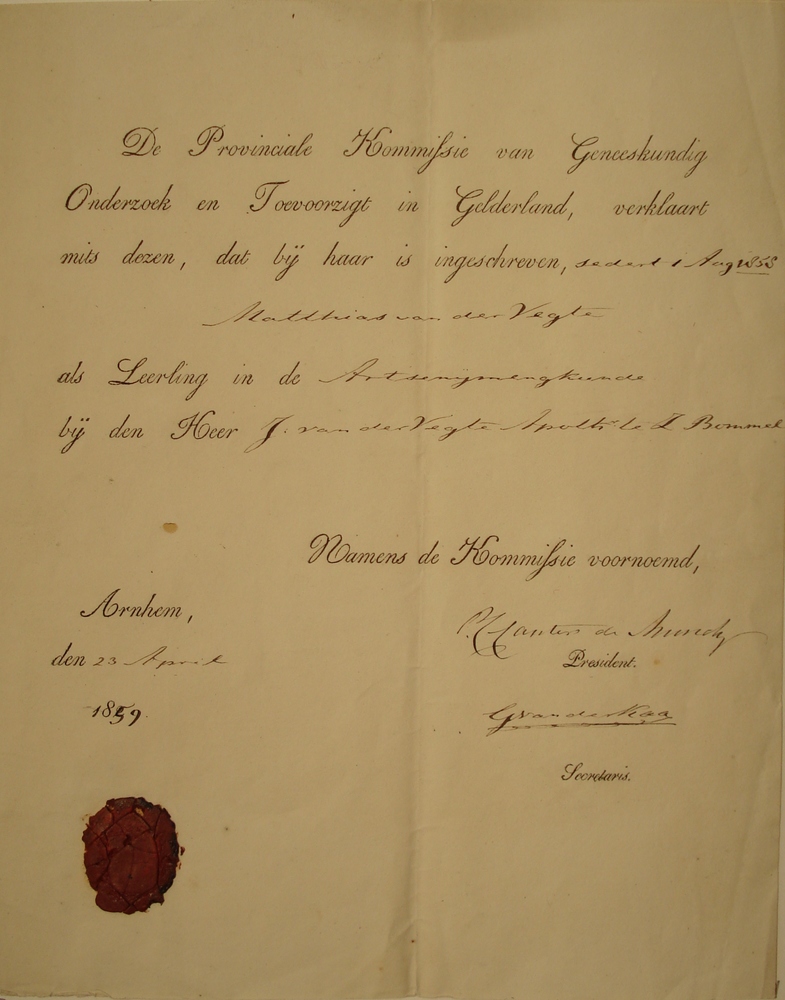 De Provinciale Kommissie van Geneeskundig
Onderzoek en Toevoorzigt in Gelderland, verklaart
mits dezen, dat bij haar is ingeschreven, sedert 1 Aug 1858
Matthias van der Vegte
als Leerling in de Artsenijmengkunde
bij den Heer J. van der Vegte Apoth. te Z Bommel
Namens de Kommissie voornoemd,
Arnhem,
den 23 April
President.
1859.
Secretaris.